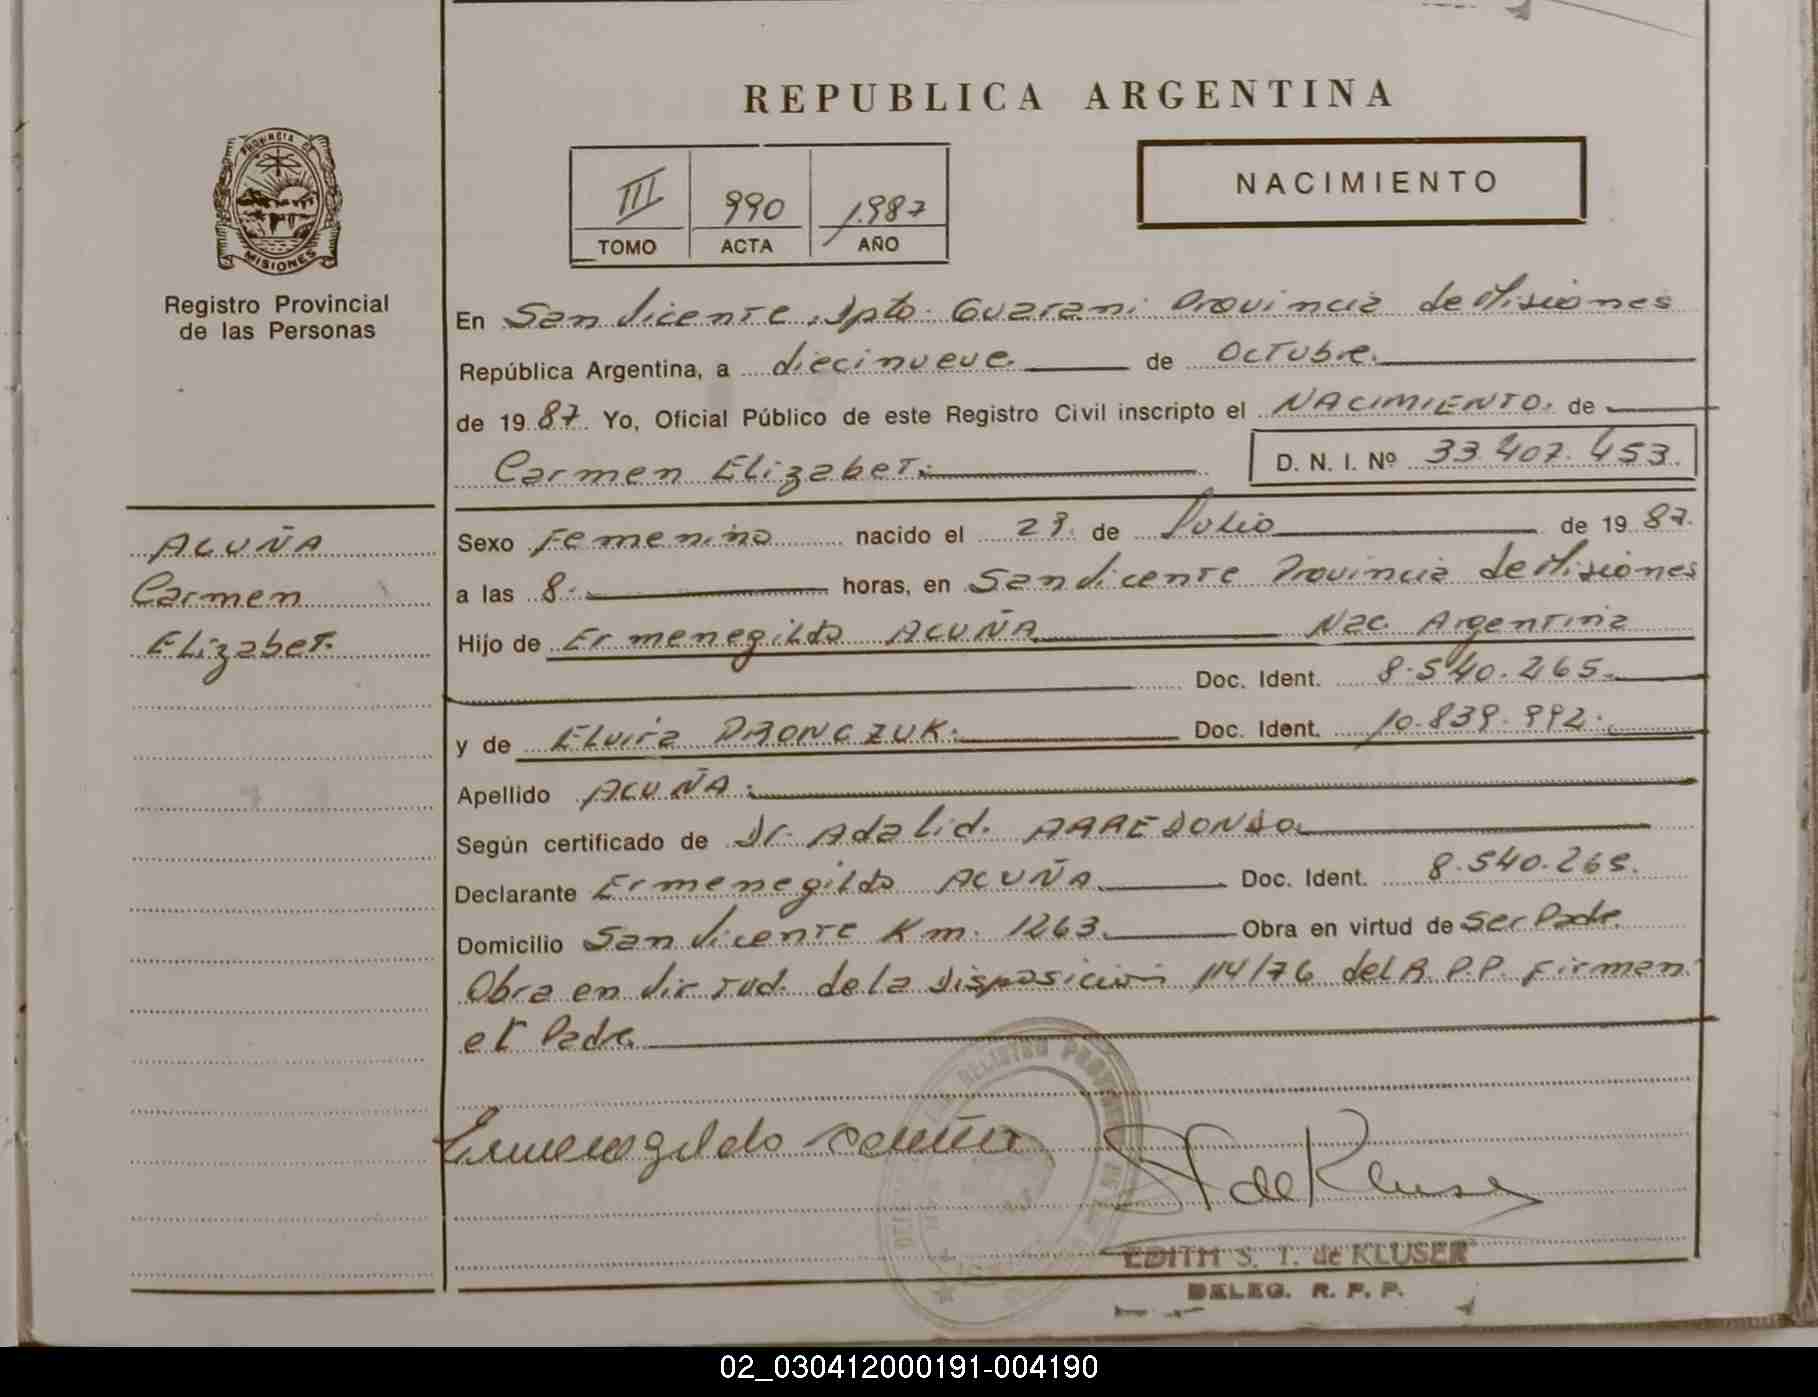 REPUBLICA ARGENTINA
PROVINCIA DE
MISIONES
Registro Provincial
de las Personas
III 990 1987
TOMO ACTA AÑO
NACIMIENTO
En San Vicente, Dpto. Guarani Provincia de Misiones
República Argentina, a diecinueve de Octubre.
de 1987. Yo, Oficial Público de este Registro Civil inscripto el NACIMIENTO. de
Carmen Elizabet. D. N. I. Nº 33.407.453.
ACUÑA
Carmen
Elizabet.
Sexo Femenino nacido el 23. de Julio de 1987.
a las 8. horas, en San Vicente Provincia de Misiones
Hijo de Ermenegildo ACUÑA Nac. Argentina
Doc. Ident. 8.540.265.
y de Elvira PRONCZUK. Doc. Ident. 10.839.992.
Apellido ACUÑA.
Según certificado de Dr. Adalid. ARREDONDO
Declarante Ermenegildo ACUÑA Doc. Ident. 8.540.265.
Domicilio San Vicente Km. 1263. Obra en virtud de Ser Padre.
Obra en Virtud. de la Disposición 114/76 del R.P.P. firman
el Padre
Ermenegildo acuña
de Kluser
EDITH S. T. de KLUSER
DELEG. R. P. P.
02_030412000191-004190